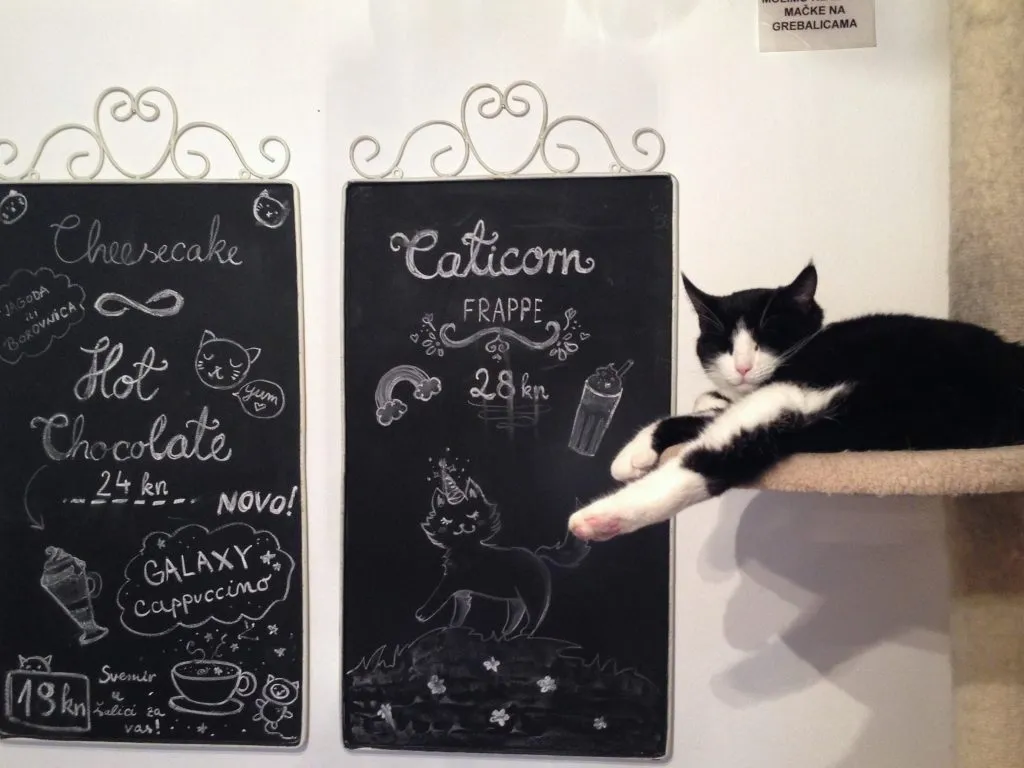 MAČKE NA
GREBALICAMA
Cheesecake
JAGODA
ILI
BOROVNICA
Hot
Chocolate
Yum
24 kn
NOVO!
GALAXY
Cappuccino
19kn
Svemir
u
šalici za
vas!
Caticorn
FRAPPE
28 kn